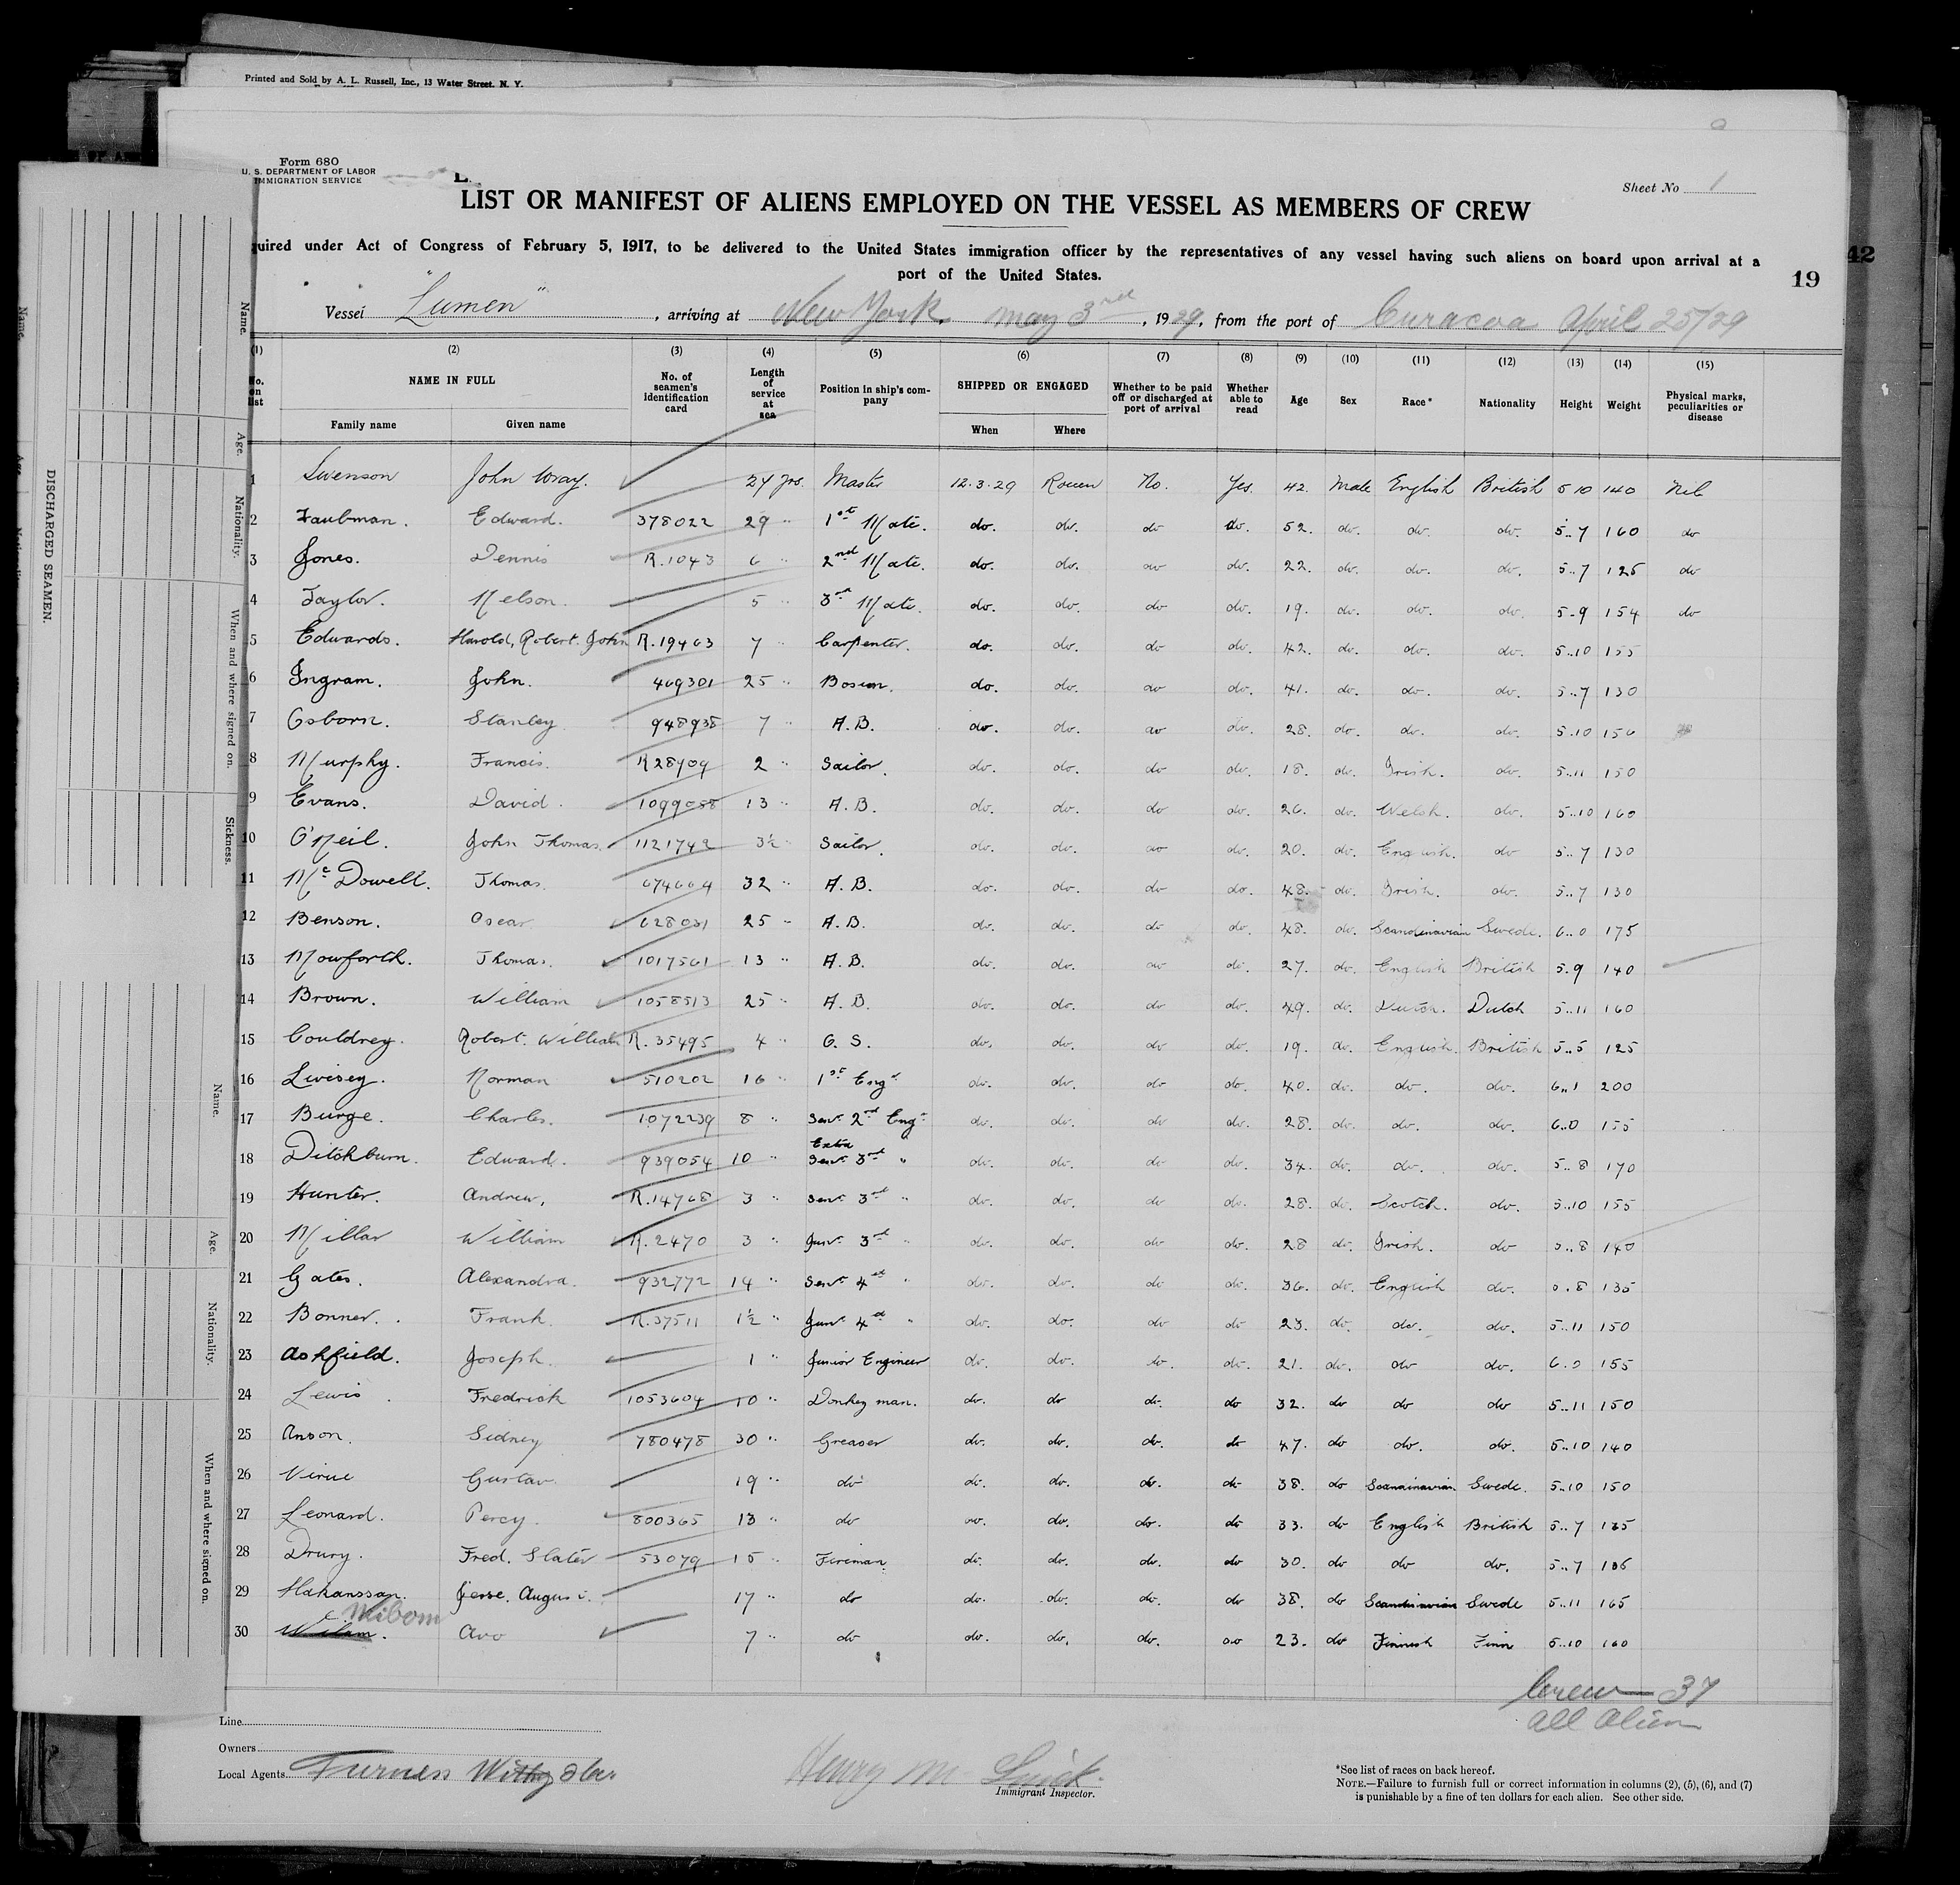 Printed and Sold by A. L. Russell, Inc., 13 Water Street, N. Y.
Form 680
U. S. DEPARTMENT OF LABOR
IMMIGRATION SERVICE
Sheet No 1
LIST OR MANIFEST OF ALIENS EMPLOYED ON THE VESSEL AS MEMBERS OF CREW
quired under Act of Congress of February 5, 1917, to be delivered to the United States immigration officer by the representatives of any vessel having such aliens on board upon arrival at a
port of the United States.
42
19
Vessel "Lumen", arriving at New York May 3rd, 1929, from the port of Curacoa April 25/29
(1) (2) (3) (4) (5) (6) (7) (8) (9) (10) (11) (12) (13) (14) (15)
No. on list NAME IN FULL Family name Given name No. of seamen's identification card Length of service at sea Position in ship's company SHIPPED OR ENGAGED When Where Whether to be paid off or discharged at port of arrival Whether able to read Age Sex Race* Nationality Height Weight Physical marks, peculiarities or disease
1 Swenson John Wray. 24 yrs Master 12.3.29 Rouen No. Yes. 42. Male English British 5 10 140 Nil
2 Taubman. Edward. 378022 29 " 1st Mate. do. do. do do. 52. do. do. do. 5..7 160 do
3 Jones. Dennis R.1043 6 " 2nd Mate. do. do. do do. 22. do. do. do. 5..7 125 do
4 Taylor. Nelson. 5 " 3rd Mate. do. do. do do. 19. do. do. do. 5-9 154 do
5 Edwards. Harold, Robert. John R.19463 7 " Carpenter. do. do. do do. 42. do. do. do. 5..10 155
6 Ingram. John. 469301 25 " Bosun. do. do. do do. 41. do. do. do. 5..7 130
7 Osborn. Stanley 948938 7 " A.B. do. do. do do. 28. do. do. do. 5.10 150
8 Murphy. Francis. R28909 2 " Sailor. do. do. do do. 18. do. Irish. do. 5..11 150
9 Evans. David. 1099088 13 " A.B. do. do. do do. 26. do. Welsh. do. 5..10 160
10 O'Neil. John Thomas. 1121742 3½ " Sailor. do. do. do do. 20. do. English. do 5..7 130
11 McDowell. Thomas. 674664 32 " A.B. do. do. do do. 48. do. Irish. do. 5..7 130
12 Benson. Oscar 628031 25 " A.B. do. do. do do. 48. do. Scandinavian Swede. 6..0 175
13 Mowforth. Thomas. 1017561 13 " A.B. do. do. do do. 27. do. English British 5.9 140
14 Brown. William 1058513 25 " A.B. do. do. do do. 49. do. Dutch. Dutch 5..11 160
15 Couldrey. Robert. William R.35495 4 " O.S. do. do. do do. 19. do. English. British 5..5 125
16 Livesey. Norman 510202 16 " 1st Engr do. do. do do. 40. do. do. do. 6..1 200
17 Burge. Charles. 1072239 8 " Senr 2nd Engr do. do. do do. 28. do. do. do. 6..0 155
18 Ditchburn. Edward. 939054 10 " Extra Senr 3rd " do. do. do do. 34. do. do. do. 5..8 170
19 Hunter. Andrew. R.14768 3 " Senr 3rd " do. do. do do. 28. do. Scotch. do. 5..10 155
20 Millar William R.2470 3 " Junr 3rd " do. do. do do. 28 do. Irish. do 5..8 140
21 Gates. Alexandra. 932772 14 " Senr 4th " do. do. do do. 36. do. English do. 5.8 135
22 Bonner. Frank. R.37511 1½ " Junr 4th " do. do. do do 23. do. do. do. 5..11 150
23 Ashfield. Joseph. 1 " Junior Engineer do. do. do. do. 21. do. do do. 6.0 155
24 Lewis. Fredrick 1053604 10 " Donkey man. do. do do. do 32. do do do 5..11 150
25 Anson. Sidney 780478 30 " Greaser do. do. do. do 47. do do. do. 5..10 140
26 Gustav. 19 " do do. do. do. do 38. do Scandinavian. Swede. 5..10 150
27 Leonard. Percy. 800365 13 " do do. do. do. do 33. do English British 5..7 135
28 Drury. Fred. Slater 53079 15 " Fireman. do. do. do. do 30. do do do. 5..7 136
29 Hakanssan. Jesse. August. 17 " do do. do. do. do 38. do Scandinavian Swede 5..11 165
30 Wibom Avo 7 " do do. do. do. do 23. do Finnish Finn 5..10 160
Crew — 37
All Alien
Line
Owners
Local Agents Furness Withy & Co.
Henry M
Immigrant Inspector.
*See list of races on back hereof.
NOTE.—Failure to furnish full or correct information in columns (2), (5), (6), and (7)
is punishable by a fine of ten dollars for each alien. See other side.
DISCHARGED SEAMEN.
Name.
Age.
Nationality.
When and where signed on.
Sickness.
Name.
Age.
Nationality.
When and where signed on.